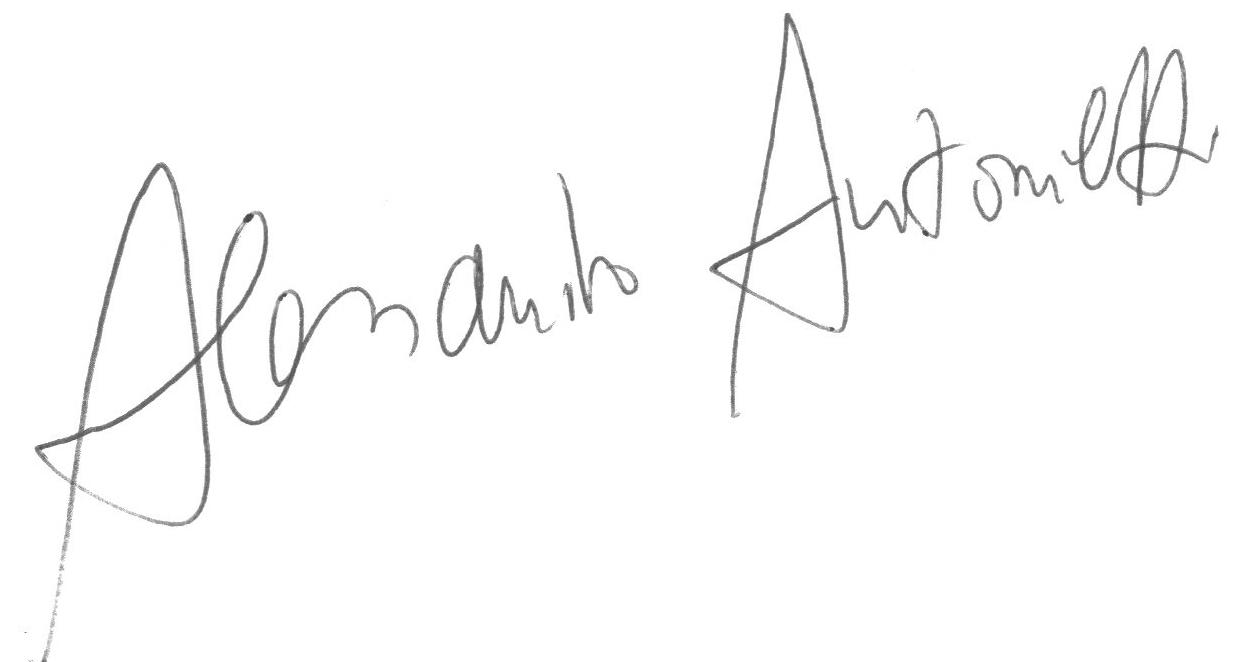 Alessandro Antonietti